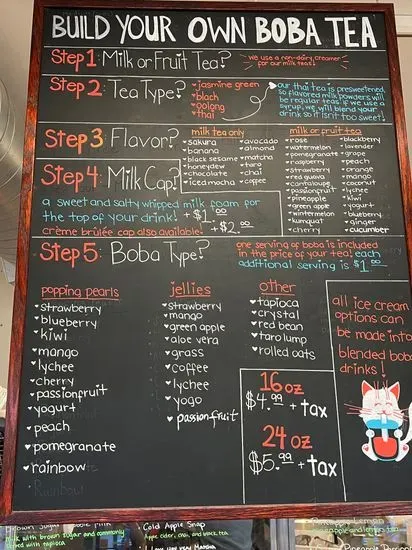 BUILD YOUR OWN BOBA TEA
Step 1: Milk or Fruit Tea?
we use a non-dairy creamer
for our milk teas!
Step 2: Tea Type?
jasmine green
black
oolong
thai
our thai tea is presweetened
so flavored milk powders will
be regular teas. if we use a
syrup, we will blend your
drink so it isn't too sweet!
Step 3: Flavor?
milk tea only
sakura
banana
black sesame
honeydew
chocolate
iced mocha
avocado
almond
matcha
taro
chai
coffee
milk or fruit tea
rose
watermelon
pomegranate
raspberry
strawberry
red guava
cantaloupe
passionfruit
pineapple
green apple
wintermelon
kumquat
cherry
blackberry
lavender
grape
peach
orange
mango
coconut
lychee
kiwi
yogurt
blueberry
ginger
cucumber
Step 4: Milk Cap?
a sweet and salty whipped milk foam for
the top of your drink! + $1.00
crème brûlée cap also available! + $2.00
Step 5: Boba Type?
one serving of boba is included
in the price of your tea! each
additional serving is $1.00
popping pearls
strawberry
blueberry
kiwi
mango
lychee
cherry
passionfruit
yogurt
peach
pomegranate
rainbow
Rainbow
jellies
strawberry
mango
green apple
aloe vera
grass
coffee
lychee
yogo
passionfruit
other
tapioca
crystal
red bean
taro lump
rolled oats
16 oz
$4.99 + tax
24 oz
$5.99 + tax
all ice cream
options can
be made into
blended boba
drinks!
Brown Sugar Boba Milk
Milk with brown sugar and commonly
served with tapioca
Cold Apple Snap
Apple cider, chai, and black tea